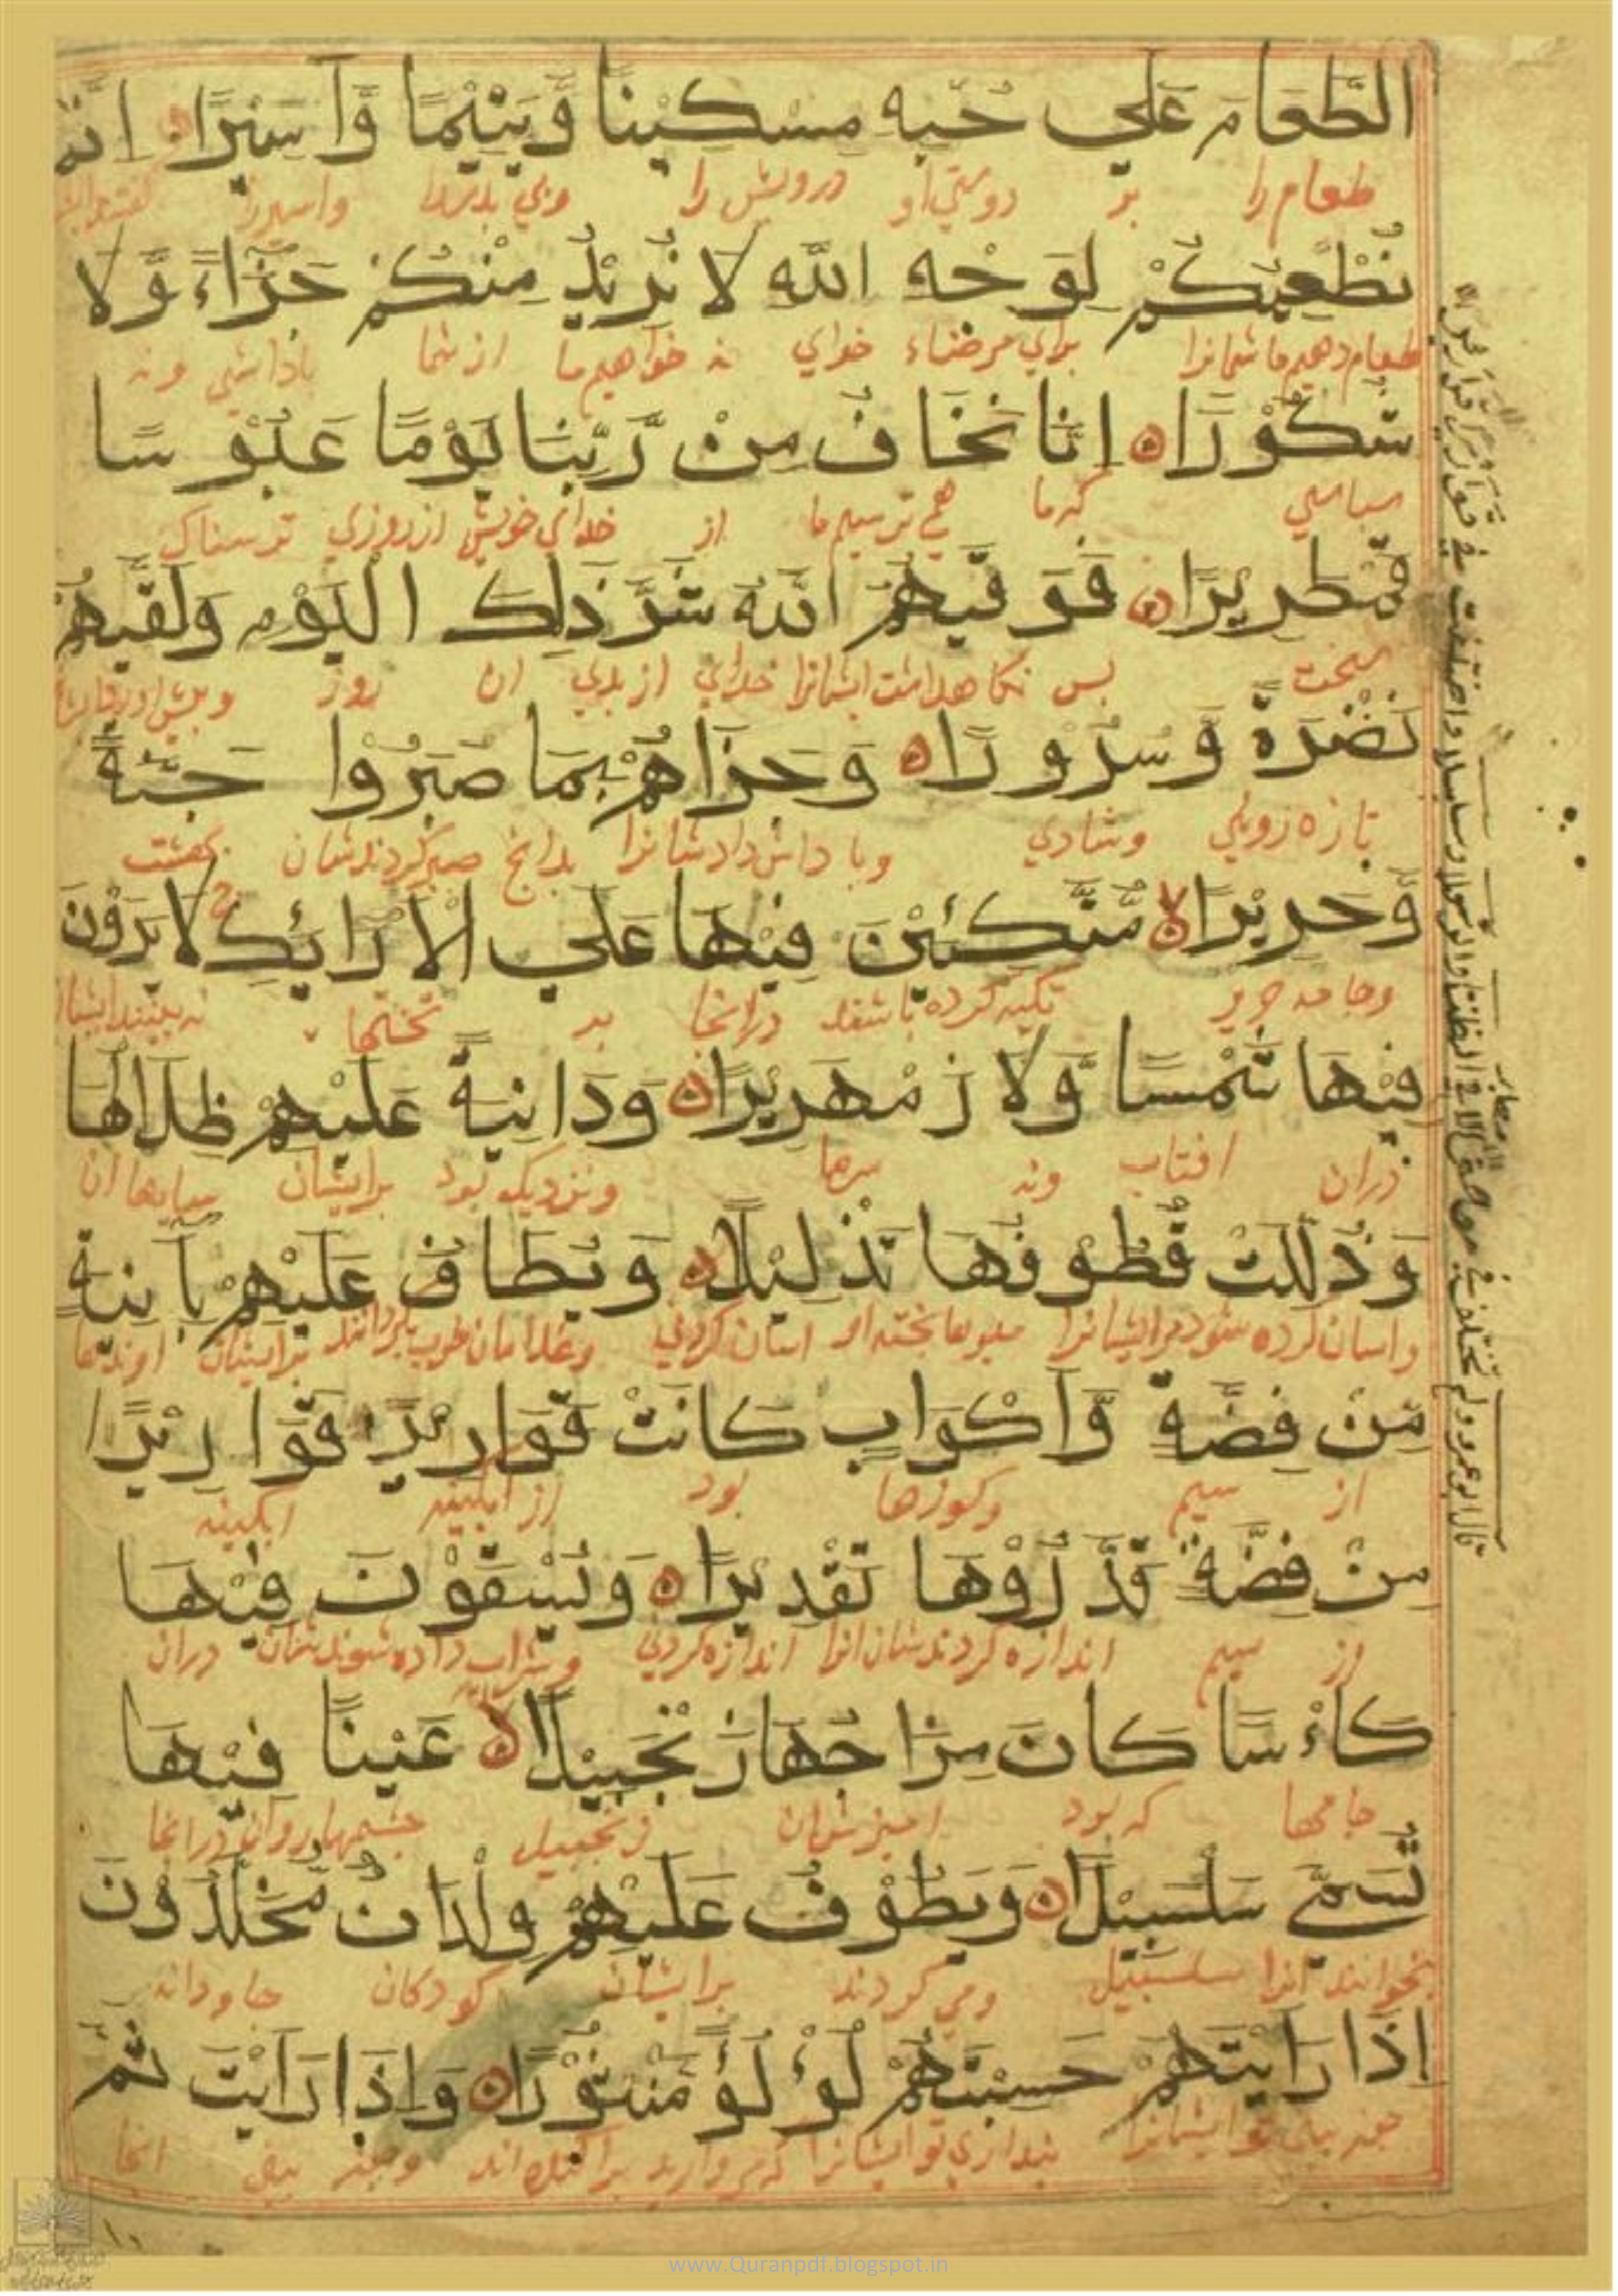 الطَّعَامَ عَلَي حُبِّهٖ مِسْكِيْنًا وَّيَتِيْمًا وَّاَسِيْرًا اِنَّمَا
طعام را بر دوستي او درويش را و بي پدر را و اسير را
نُطْعِمُكُمْ لِوَجْهِ اللّٰهِ لَا نُرِيْدُ مِنْكُمْ جَزَآءً وَّلَا
طعام دهيم ما شمانرا براي مرضاء خداي نه خواهيم ما از شما پاداشي ونه
شُكُوْرًا اِنَّا نَخَافُ مِنْ رَّبِّنَا يَوْمًا عَبُوْسًا
سپاسي كه ما همي ترسيم ما از خداي خويش از روزي ترسناك
قَمْطَرِيْرًا فَوَقٰيهُمُ اللّٰهُ شَرَّ ذٰلِكَ الْيَوْمِ وَلَقّٰيهُمْ
سخت پس نگاهداشت ايشانرا خداي از بدي ان روز
نَضْرَةً وَّسُرُوْرًا وَجَزَاهُمْ بِمَا صَبَرُوْا جَنَّةً
تازه رويي وشادي وپاداش داد شانرا بدانچ صبر كردند شان بهشت
وَّحَرِيْرًا مُّتَّكِئِيْنَ فِيْهَا عَلَي الْاَرَائِكِ لَا يَرَوْنَ
وجامه حرير تكيه كرده باشند درانجا بر تختها نه بينند ايشان
فِيْهَا شَمْسًا وَّلَا زَمْهَرِيْرًا وَدَانِيَةً عَلَيْهِمْ ظِلَالُهَا
دران افتاب ونه سرما ونزديك بود برايشان سايها ان
وَذُلِّلَتْ قُطُوْفُهَا تَذْلِيْلًا وَيُطَافُ عَلَيْهِمْ بِآنِيَةٍ
واسان كرده شود مرايشانرا ميوها اسان كردني برايشان اوندها
مِّنْ فِضَّةٍ وَّاَكْوَابٍ كَانَتْ قَوَارِيْرَا قَوَارِيْرَا
از سيم وكوزها بود از ابگينه ابگينه
مِنْ فِضَّةٍ قَدَّرُوْهَا تَقْدِيْرًا وَيُسْقَوْنَ فِيْهَا
از سيم اندازه كردند شان انرا اندازه كردني وشراب داده شوند شان دران
كَاْسًا كَانَ مِزَاجُهَا زَنْجَبِيْلًا عَيْنًا فِيْهَا
جامها كه بود اميزش ان زنجبيل درانجا
تُسَمّٰي سَلْسَبِيْلًا وَيَطُوْفُ عَلَيْهِمْ وِلْدَانٌ مُّخَلَّدُوْنَ
بخوانند انرا سلسبيل ومي گردند برايشان كودكان جاودانه
اِذَا رَاَيْتَهُمْ حَسِبْتَهُمْ لُؤْلُؤًا مَّنْثُوْرًا وَاِذَا رَاَيْتَ ثَمَّ
پنداري تو ايشانرا كه مرواريد پراگنده اند وچو بيني انجا
www.Quranpdf.blogspot.in